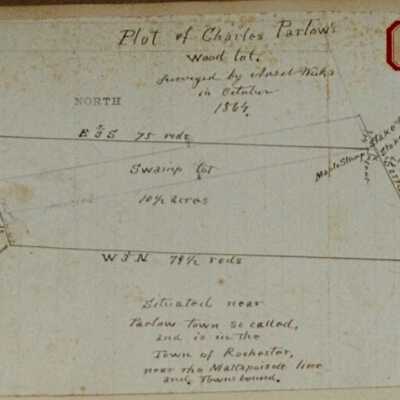 Plot of Charles Parlow's
Wood lot.
Surveyed by Ansel Weeks
in October
1864.
NORTH
75 rods
Swamp lot
10½ acres
Maple Stump
Stake
W 3 N 79½ rods
Situated near
Parlow town so called,
and is in the
Town of Rochester,
near the Mattapoisett line
and Townbound.